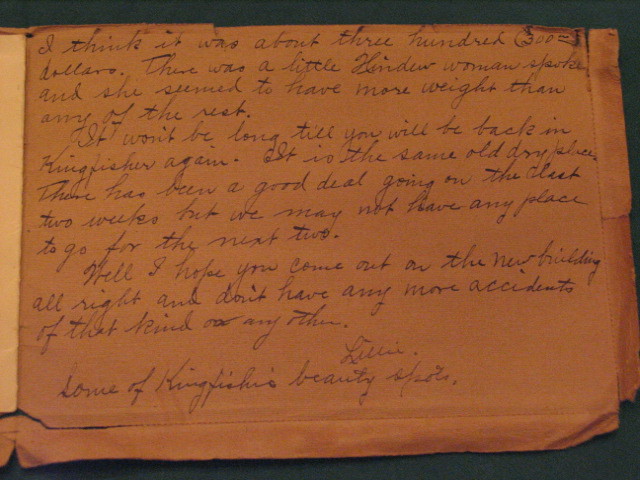 I think it was about three hundred (300=)
dollars. There was a little Hindew woman spoke
and she seemed to have more weight than
any of the rest.
"It" won't be long till you will be back in
Kingfisher again. It is the same old dry place.
There has been a good deal going on the last
two weeks but we may not have any place
to go for the next two.
Well I hope you come out on the new building
all right and don't have any more accidents
of that kind or any other.
Lillie.
Some of Kingfishis beauty spots.